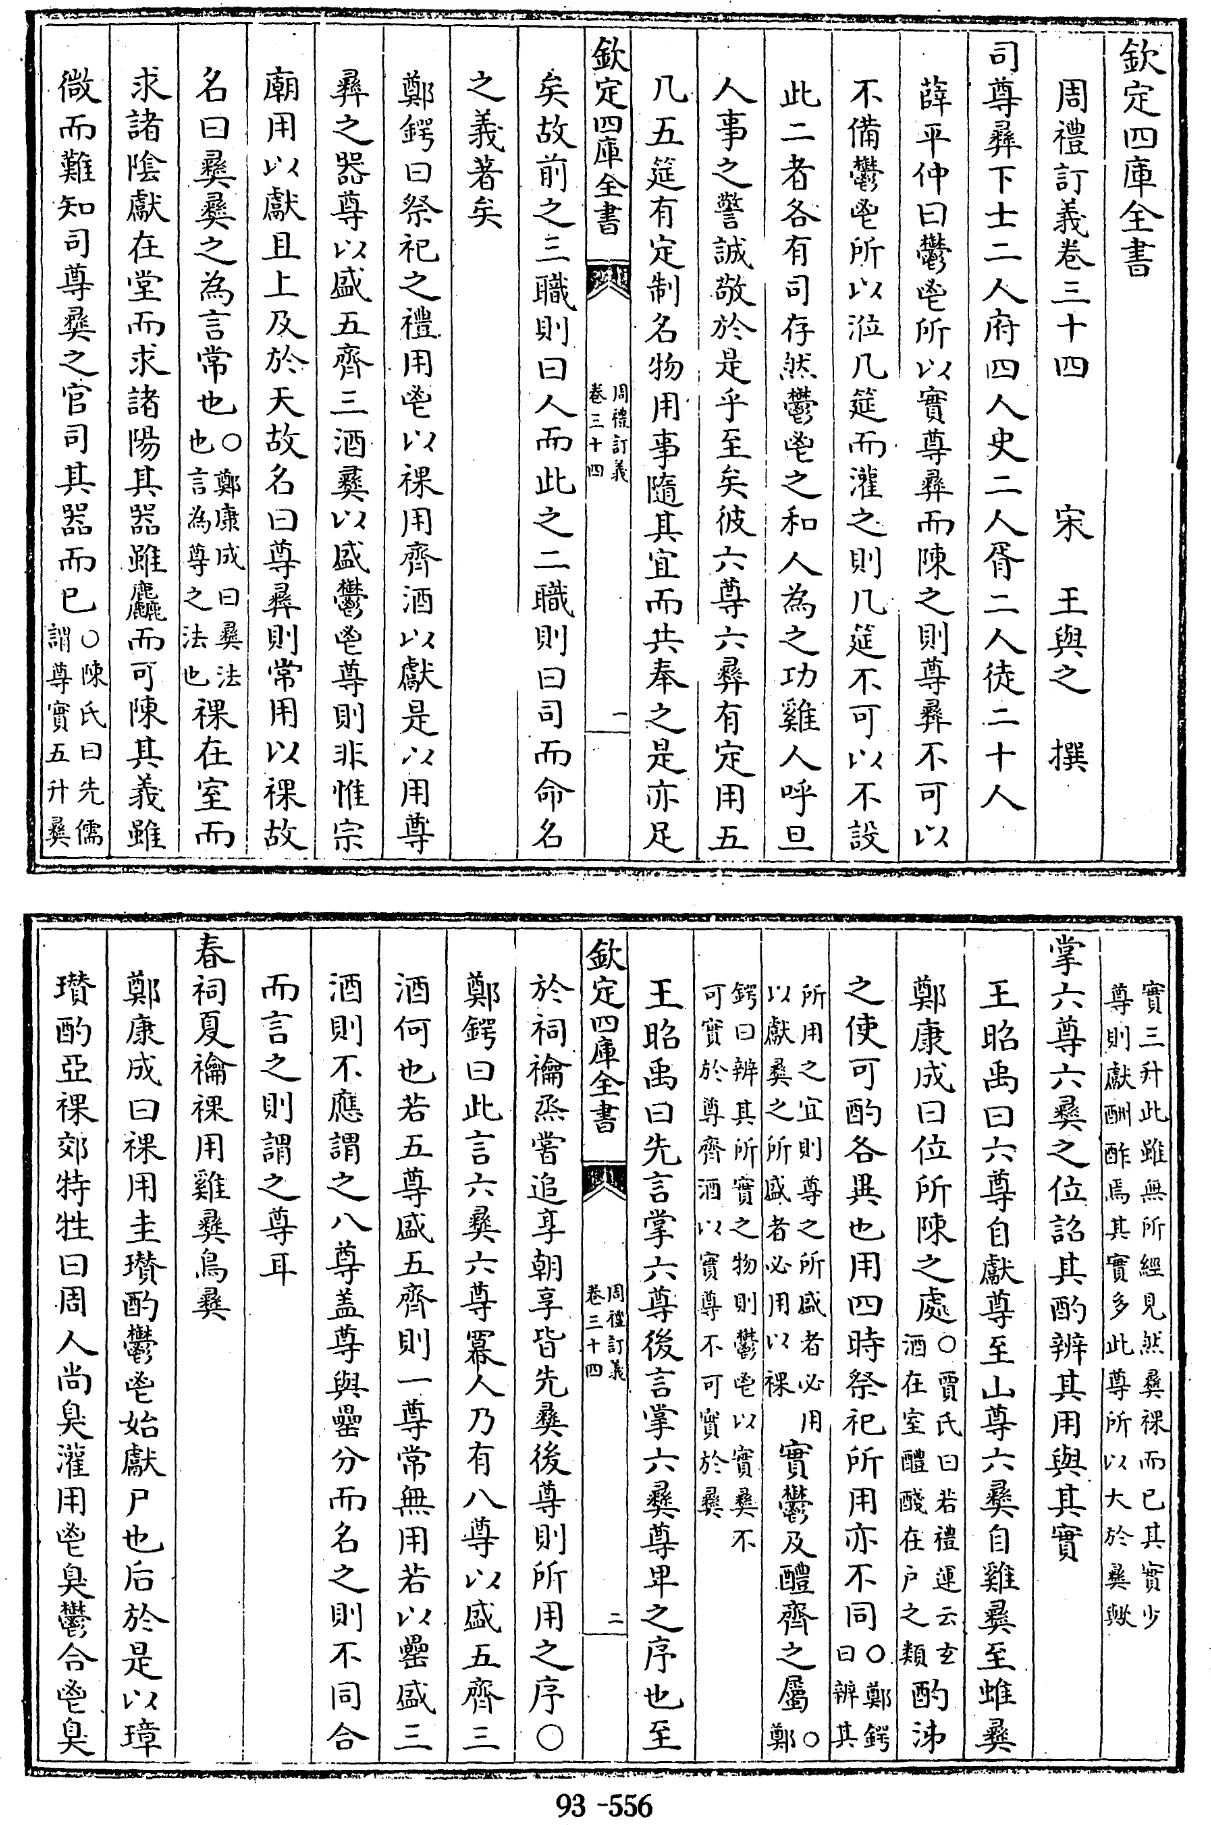 欽定四庫全書
周禮訂義卷三十四　宋　王與之　撰
司尊彛下士二人府四人史二人胥二人徒二十人
薛平仲曰鬱鬯所以實尊彛而陳之則尊彛不可以
不備鬱鬯所以涖几筵而灌之則几筵不可以不設
此二者各有司存然鬱鬯之和人為之功雞人呼旦
人事之警誠敬於是乎至矣彼六尊六彛有定用五
几五筵有定制名物用事隨其宜而共奉之是亦足
欽定四庫全書
周禮訂義
卷三十四
一
矣故前之三職則曰人而此之二職則曰司而命名
之義著矣
鄭鍔曰祭祀之禮用鬯以祼用齊酒以獻是以用尊
彛之器尊以盛五齊三酒彛以盛鬱鬯尊則非惟宗
廟用以獻且上及於天故名曰尊彛則常用以祼故
名曰彛彛之為言常也〇鄭康成曰彛法
也言為尊之法也祼在室而
求諸陰獻在堂而求諸陽其器雖麤而可陳其義雖
微而難知司尊彛之官司其器而已〇陳氏曰先儒
謂尊實五升彛
實三升此雖無所經見然彛祼而已其實少
尊則獻酬酢焉其實多此尊所以大於彛歟
掌六尊六彛之位詔其酌辨其用與其實
王昭禹曰六尊自獻尊至山尊六彛自雞彛至蜼彛
鄭康成曰位所陳之處〇賈氏曰若禮運云玄
酒在室醴醆在户之類酌泲
之使可酌各異也用四時祭祀所用亦不同〇鄭鍔
曰辨其
所用之宜則尊之所盛者必用
以獻彛之所盛者必用以祼實鬱及醴齊之屬〇
鄭
鍔曰辨其所實之物則鬱鬯以實彛不
可實於尊齊酒以實尊不可實於彛
王昭禹曰先言掌六尊後言掌六彛尊卑之序也至
欽定四庫全書
周禮訂義
卷三十四
二
於祠禴烝嘗追享朝享皆先彛後尊則所用之序〇
鄭鍔曰此言六彛六尊冪人乃有八尊以盛五齊三
酒何也若五尊盛五齊則一尊常無用若以罍盛三
酒則不應謂之八尊盖尊與罍分而名之則不同合
而言之則謂之尊耳
春祠夏禴祼用雞彛鳥彛
鄭康成曰祼用圭瓉酌鬱鬯始獻尸也后於是以璋
瓉酌亞祼郊特牲曰周人尚臭灌用鬯臭鬱合鬯臭
93-556